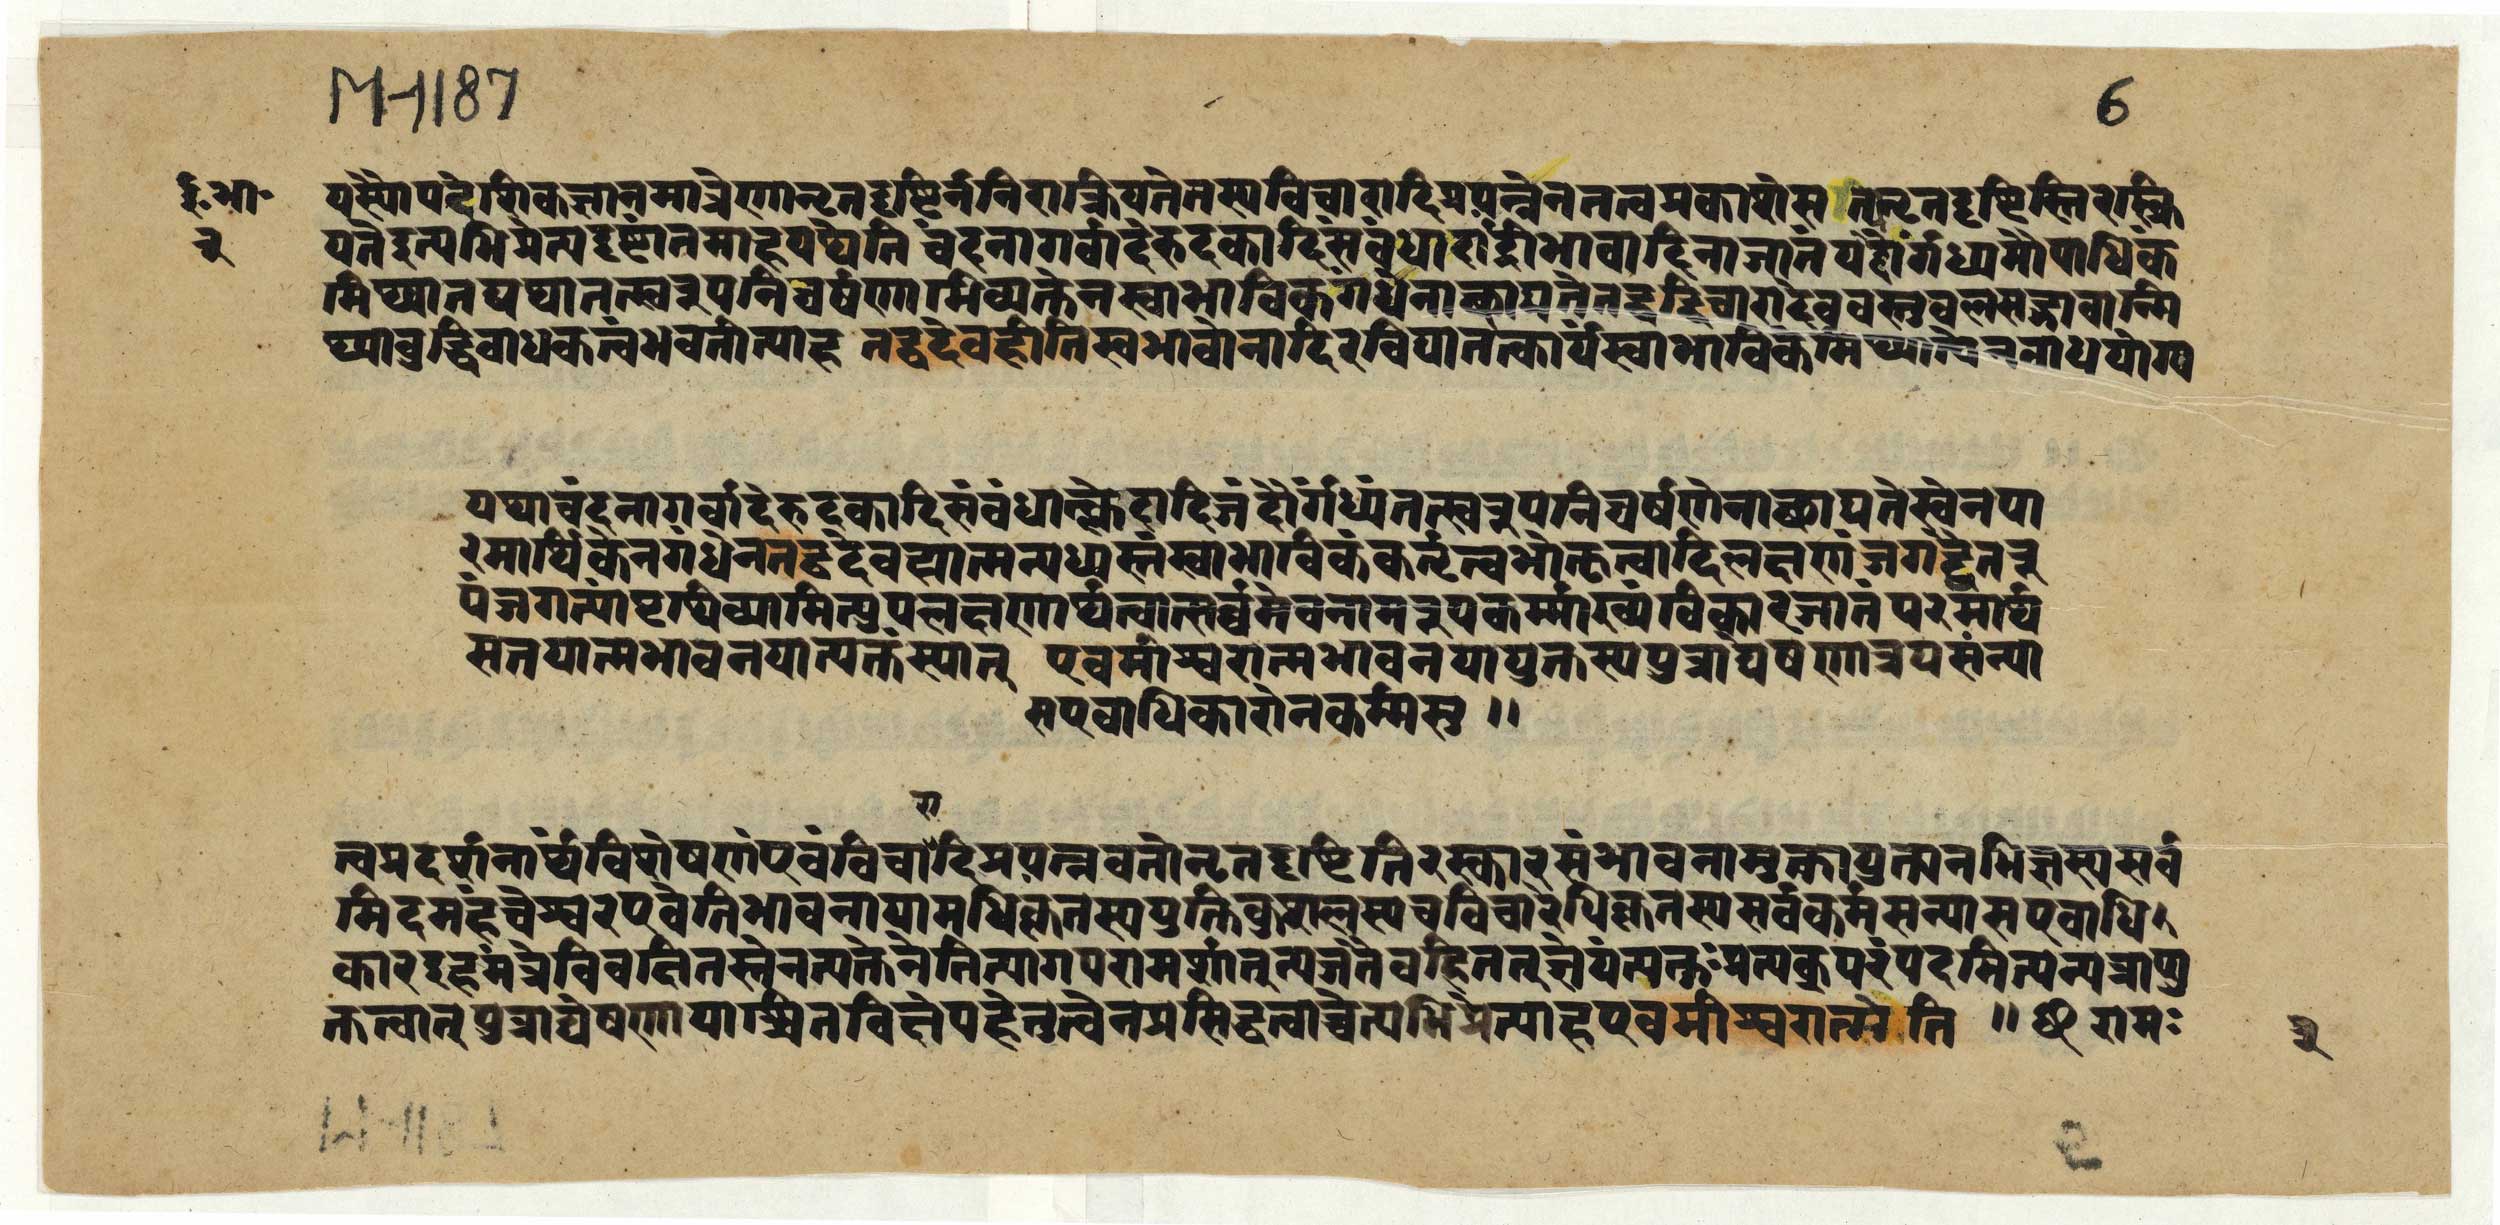 M-1187
6
ई.भा.
३
यस्यौपदेशिकज्ञानमात्रेणानृतदृष्टिर्ननिराक्रियतेतस्यविचारादिप्रयत्नेनतत्वप्रकाशेसतिअनृतदृष्टिस्तिरस्क्रि
यतेइत्यभिप्रेत्यदृष्टांतमाहयथेति चंदनागर्वादेरुदकादिसंबंधार्द्रीभावादिनाजातंयद्दौर्गंध्यमौपाधिकं
मिथ्यातद्यथातत्स्वरूपनिघर्षणाभिव्यक्तेनस्वाभाविकगंधेनाच्छाद्यतेतद्वद्विचारादेववस्तुबलसद्भावान्मि
थ्याबुद्धिबाधकत्वंभवतीत्याह तद्वदेवहीतिस्वभावोनादिरविद्यातत्कार्यंस्वाभाविकंमिथ्यात्वेनबाधयोग्य
यथाचंदनागर्वादेरुदकादिसंबंधात्क्लेदादिजंदौर्गंध्यंतत्स्वरूपनिघर्षणेनाच्छाद्यतेस्वेनपा
रमार्थिकेनगंधेनतद्वदेवह्यात्मन्यध्यस्तंस्वाभाविकंकर्तृत्वभोक्तृत्वादिलक्षणंजगद्द्वैतरू
पंजगत्यांपृथिव्यामित्युपलक्षणार्थत्वात्सर्वमेवनामरूपकर्माख्यंविकारजातंपरमार्थ
सतयात्मभावनयात्यक्तंस्यात् एवमीश्वरात्मभावनयायुक्तस्यपुत्राद्येषणात्रयसंन्या
सएवाधिकारोनकर्मसु ॥
रा
त्वप्रदर्शनार्थंविशेषणंएवंविचादिप्रयत्नवतोनृतदृष्टितिरस्कारसंभावनामुक्त्वायुक्त्यनभिज्ञस्यसर्व
मिदमहंचेश्वरएवेतिभावनायामधिकृतस्ययुक्तिकुशलस्यचविचारेधिकृतस्यसर्वकर्मसन्यासएवाधि
कारइहमंत्रेविवक्षितस्तेनत्यक्तेनेतित्यागपरामर्शात्त्यजतैवहितत्ज्ञेयंत्यक्तुःप्रत्यक्परंपदमित्यन्यत्राप्यु
क्तत्वात् पुत्राद्येषणायाश्चितविक्षेपहेतुत्वेनप्रसिद्धत्वाच्चेत्यभिप्रेत्याहएवमीश्वरात्मेति ॥ राम:
३